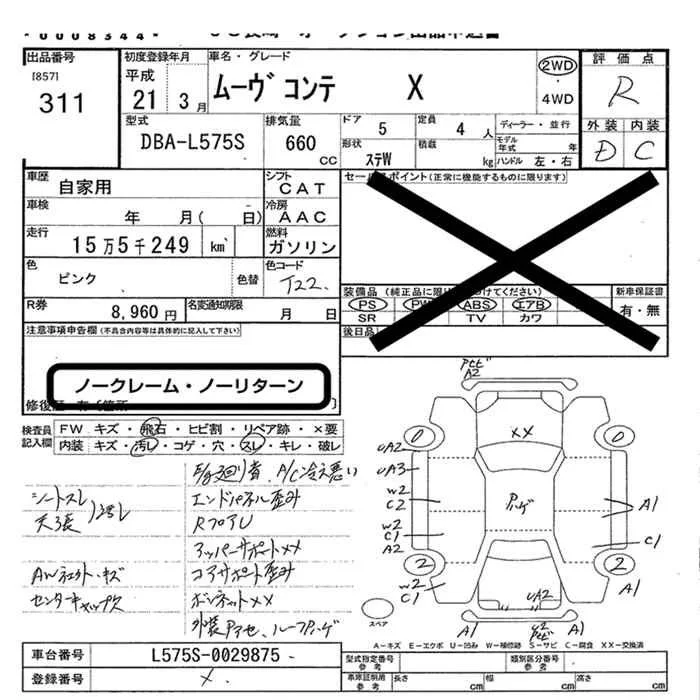 0008344
出品番号
[857]
311
初度登録年月
平成
21 3月
車名・グレード
ムーヴ コンテ X
2WD・4WD
評価点
R
外装 内装
D C
型式
DBA-L575S
排気量
660 CC
ドア 5
定員 4 人
形状 ステW
積載 kg
ディーラー・並行
モデル年式 年
ハンドル 左・右
車歴
自家用
シフト
CAT
車検
年 月( 日)
冷房
AAC
走行
15万5千249 km
燃料
ガソリン
色
ピンク
色替
色コード
T22
R券
8,960円
名変通知期限
月 日
セールスポイント(正常に機能するものに限ります)
装備品(純正品に限り 付けてください)
PS PW ABS エアB
SR TV カワ
後日品
新車保証書
有・無
注意事項申告欄(不具合内容等は具体的に記入して下さい)
ノークレーム・ノーリターン
修復歴
検査員記入欄
FW キズ・飛石・ヒビ割・リペア跡・×要
内装 キズ・汚レ・コゲ・穴・スレ・キレ・破レ
シートスレ
天張 汚レ
AWガリキズ
センターキャップ欠
A/C冷え悪い
エンドパネル歪み
RフロアU
アッパーサポート××
コアサポート歪み
ボンネット××
外装アセ、ルーフハゲ
A2
0 0
××
UA2
UA3
W2
C2
ハゲ
A1
W2
C1
A2
C1
2 2
W2
C1
UA2
A1
A1
A1
スペア
A-キズ E-エクボ U-凹み W-補修跡 S-サビ C-腐食 XX-交換済
車台番号
L575S-0029875
登録番号
×
型式指定番号 参考
類別区分番号 参考
車庫証明用 参考
長さ cm
幅 cm
高さ cm